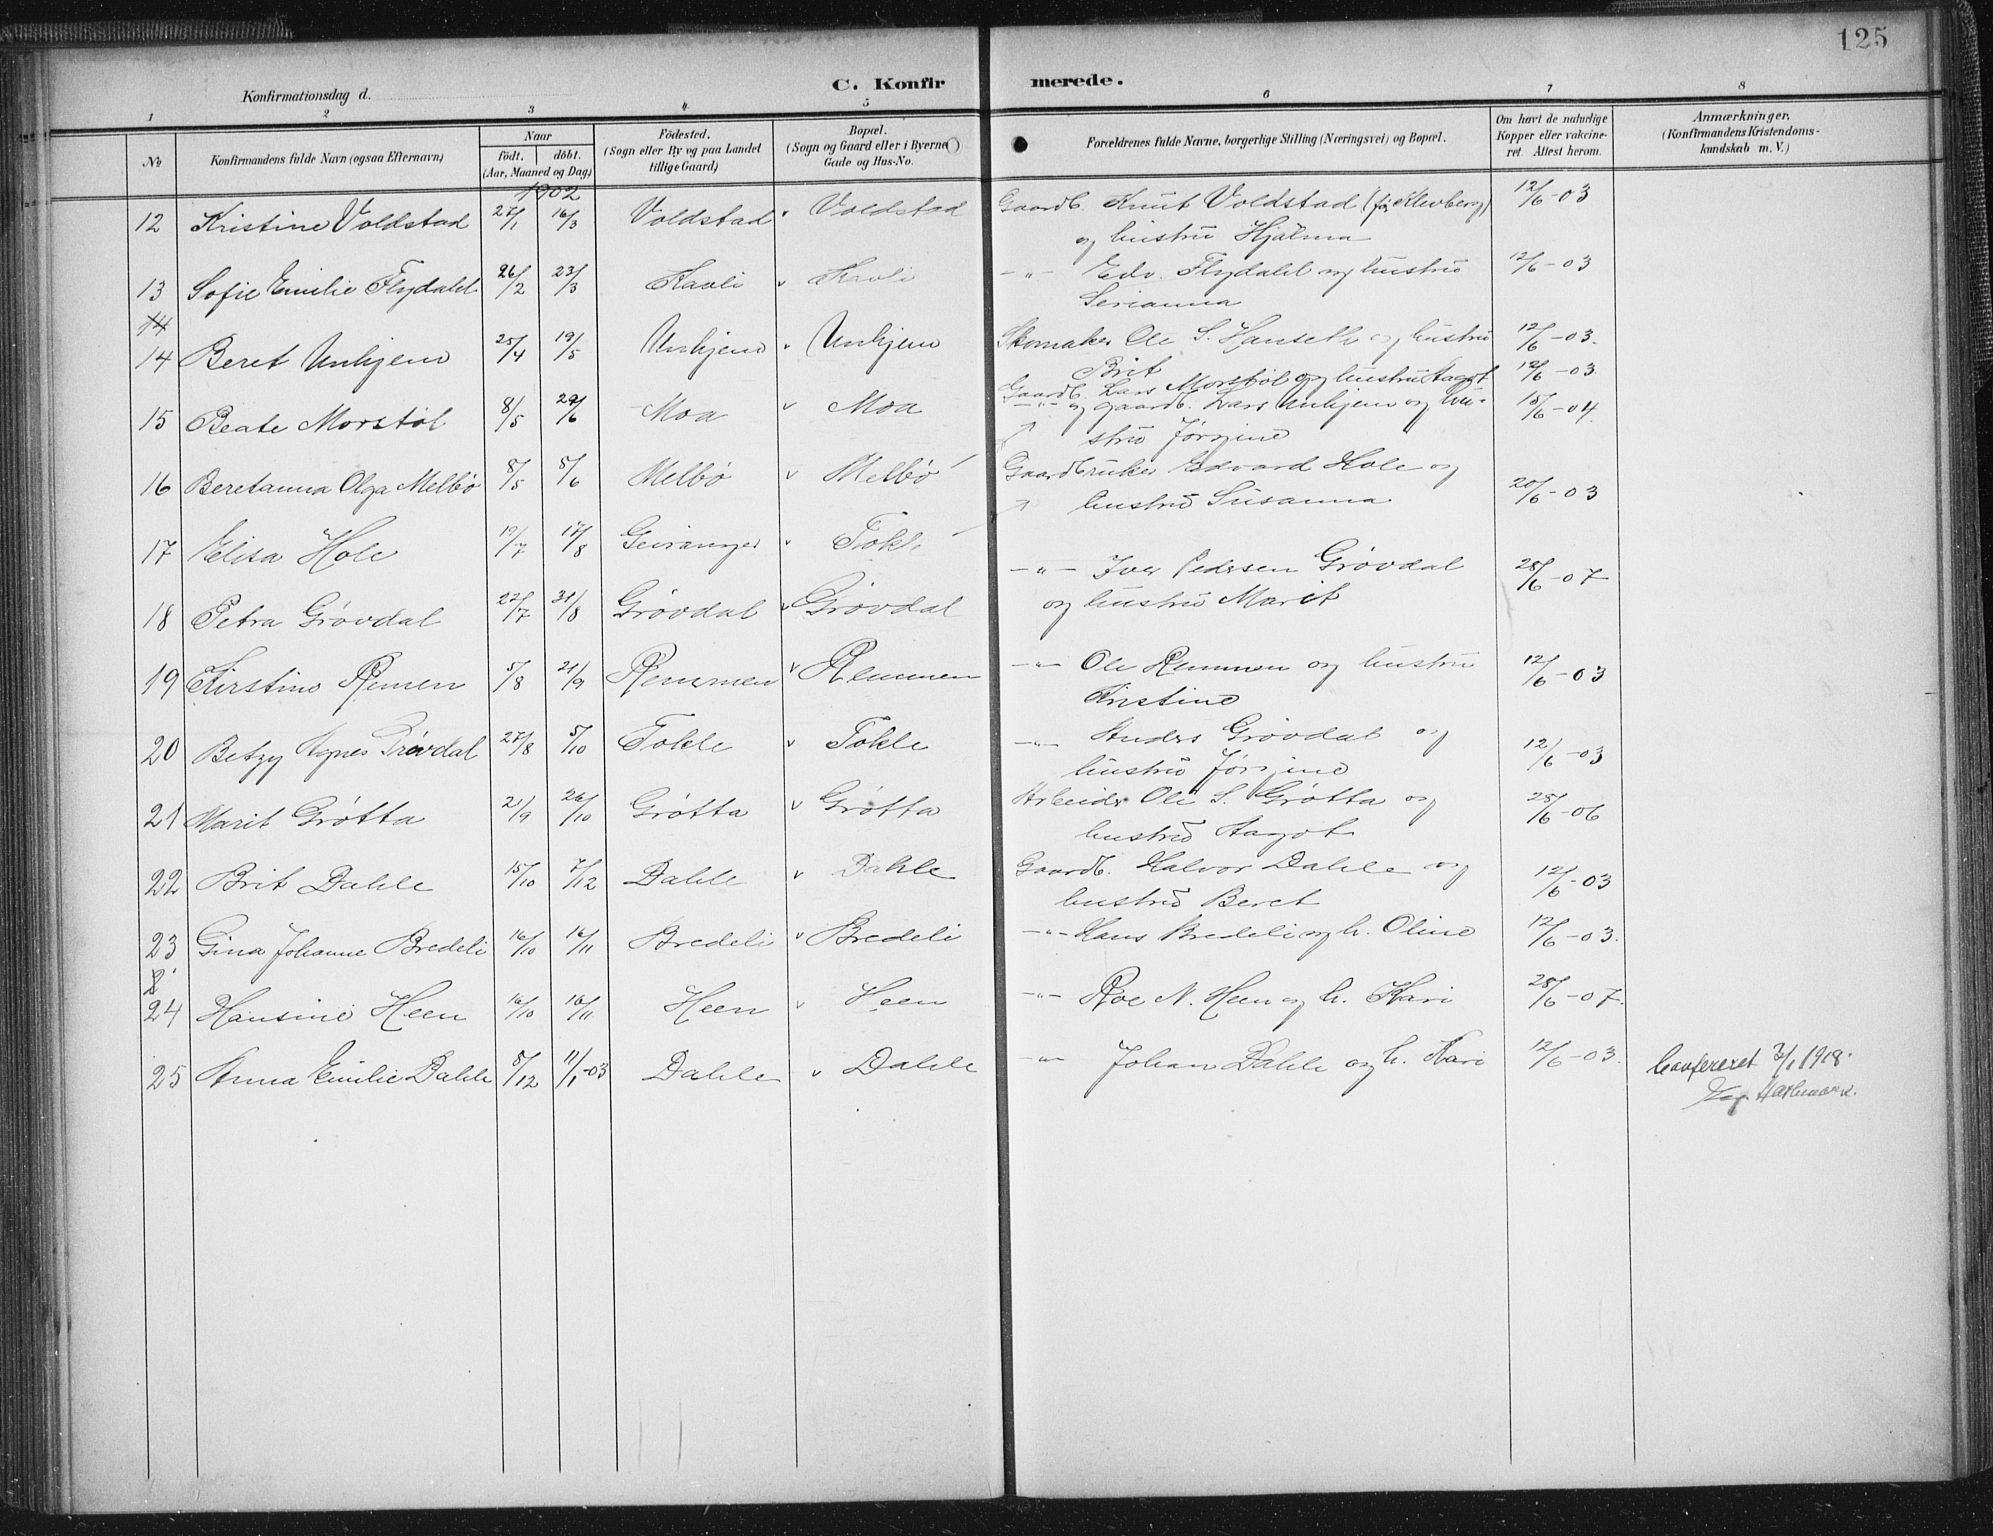 125
C. Konfir merede.
Konfirmationsdag d.
1 2 3 4 5 6 7 8
No Konfirmandens fulde Navn (ogsaa Efternavn) Naar født. døbt. (Aar, Maaned og Dag) Fødested. (Sogn eller By og paa Landet tillige Gaard) Bopæl. (Sogn og Gaard eller i Byerne Gade og Hus-No. Forældrenes fulde Navne, borgerlige Stilling (Næringsvei) og Bopæl. Om havt de naturlige Kopper eller vakcineret. Attest herom. Anmærkninger. (Konfirmandens Kristendomskundskab m. V.)
1902
12 Kristine Voldstad 27/1 16/3 Voldstad Voldstad Gaardb. Knut Voldstad (før Klevberg) 12/6-03
og hustru Hjalma
13 Sofie Emilie Flydalel 26/2 23/3 Kavli Kavli -"- Edv. Flydalel og hustru 12/6-03
Serianna
14
14 Beret Unhjem 25/4 19/5 Unhjem Unhjem Skomaker Ole S. Hanseth og hustru 12/6-03.
Brit
15 Beate Morstøl 8/5 29/6 Moa Moa Gaardb. Lars Morstøl og hustru Aagot 12/6-03
16 Beretanna Olga Melbø 8/5 5/6 Melbø Melbø -"- og gaardb. Lars Unhjem og hu- 15/6-04.
stru Jørgine
17 Elisa Hole 19/7 17/8 Geiranger Tokle Gaardbruker Edvard Hole og 20/6-03
hustru Susanna
18 Petra Grøvdal 22/7 31/8 Grøvdal Grøvdal -"- Iver Pedersen Grøvdal 28/6-07
og hustru Marit
19 Kirstine Remen 5/8 21/9 Remmen Remmen -"- Ole Remmen og hustru 12/6-03
Kristine
20 Betzy Agnes Grøvdal 27/8 5/10 Tokle Tokle -"- Anders Grøvdal og 12/6-03
hustru Jørgine
21 Marit Grøtta 21/9 26/10 Grøtta Grøtta Arbeider Ole S. Grøtta og 28/6-06
hustru Aagot
22 Brit Dahle 15/10 7/12 Dahle Dahle Gaardb. Halvor Dahle og 12/6-03
hustru Beret
23 Gina Johanne Bredeli 16/10 16/11 Bredeli Bredeli -"- Hans Bredeli og h. Oline 12/6-03.
24 Hansine Heen 16/10 16/11 Heen Heen -"- Roe N. Heen og h. Kari 28/6-07.
25 Anna Emilie Dahle 5/12 11/1-03 Dahle Dahle -"- Johan Dahle og h. Kari 12/6-03. Confereret 3/1 1918.